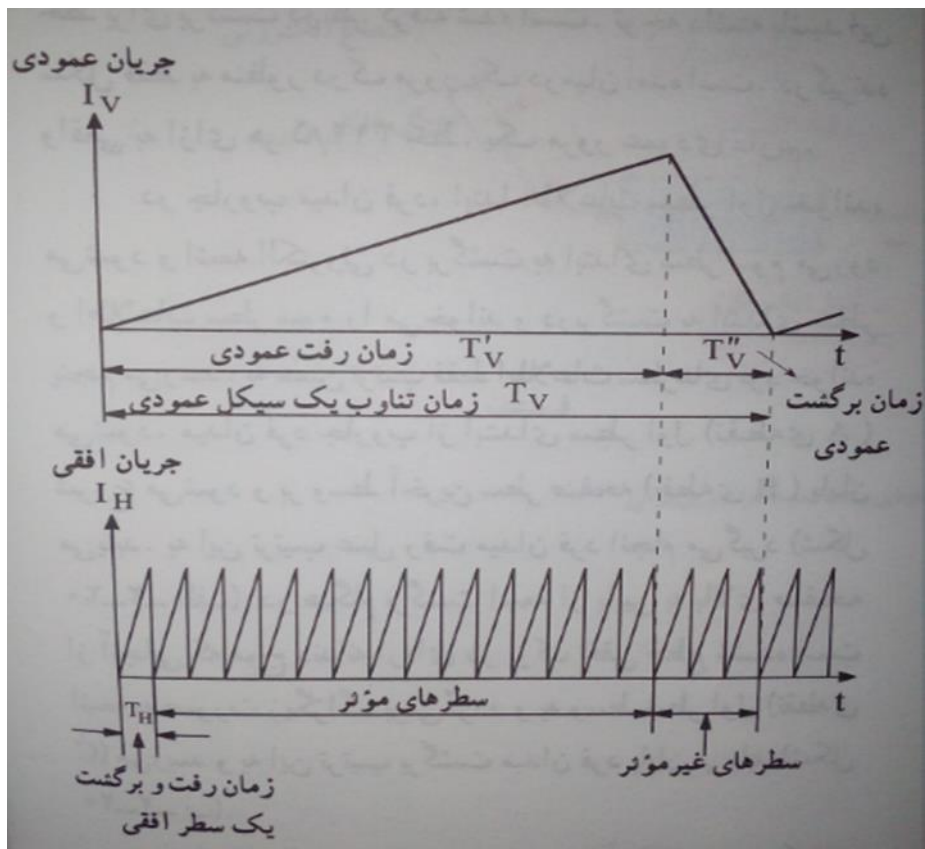 جریان عمودی
I_V
زمان رفت عمودی T'_V
T''_V
t
زمان تناوب یک سیکل عمودی T_V
زمان برگشت
عمودی
جریان افقی
I_H
t
T_H
سطرهای مؤثر
سطرهای غیرمؤثر
زمان رفت و برگشت
یک سطر افقی